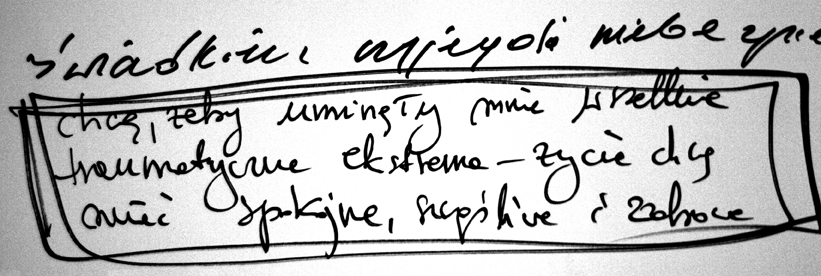 świadkiem,
chcę, żeby uminęły mnie wszelkie
traumatyczne ekstrema – życie chcę
mieć spokojne, szczęśliwe i zdrowe